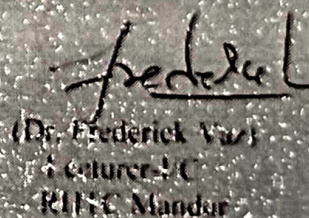 Frederick
(Dr. Frederick Vaz)
Lecturer-I/C
RHTC Mandur